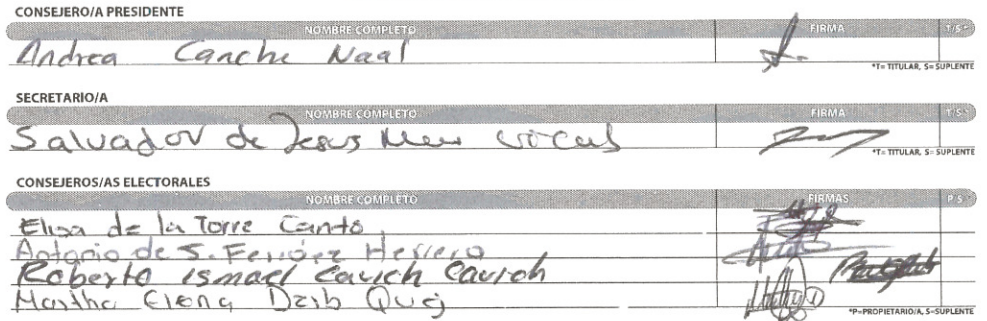 CONSEJERO/A PRESIDENTE
NOMBRE COMPLETO FIRMA T/S*
Andrea Canche Naal
*T= TITULAR, S= SUPLENTE
SECRETARIO/A
NOMBRE COMPLETO FIRMA T/S*
Salvador de Jesus
*T= TITULAR, S= SUPLENTE
CONSEJEROS/AS ELECTORALES
NOMBRE COMPLETO FIRMAS P S*
Elisa de la Torre Canto
Antonio de S. Herrera
Roberto Ismael Cauich Cauich
Martha Elena Dzib Quej
*P=PROPIETARIO/A, S=SUPLENTE